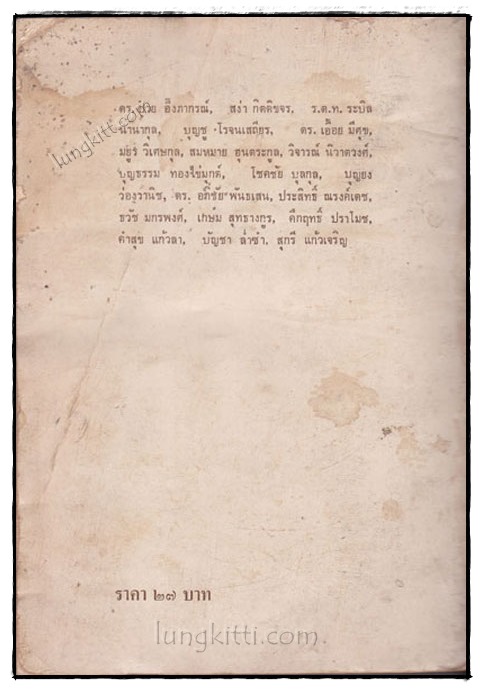 ดร. ป๋วย อึ๊งภากรณ์, สง่า กิตติขจร, ร.ต.ท. ระบิล
นานากุล, บุญชู โรจนเสถียร, ดร. เอื้อย มีศุข,
มยูร วิเศษกุล, สมหมาย ฮุนตระกูล, วิจารณ์ นิวาตวงศ์,
บุญธรรม ทองไข่มุกต์, โชคชัย บุลกุล, บุญยง
ว่องวานิช, ดร. อภิชัย พันธเสน, ประสิทธิ์ ณรงค์เดช,
ธวัช มกรพงศ์, เกษม สุทธางกูร, คึกฤทธิ์ ปราโมช,
คำสุข แก้วลา, บัญชา ล่ำซำ, สุกรี แก้วเจริญ
ราคา ๒๗ บาท
lungkitti.com
lungkitti.com